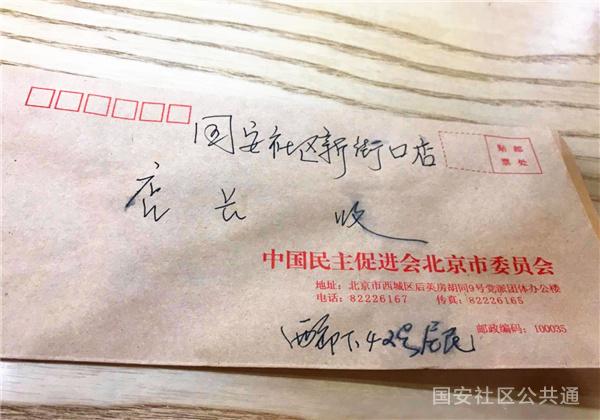 国安社区新街口店
贴 邮
票 处
店长 收
中国民主促进会北京市委员会
地址：北京市西城区后英房胡同9号党派团体办公楼
电话：82226167 传真：82226165
邮政编码：100035
42号居民
国安社区公共通